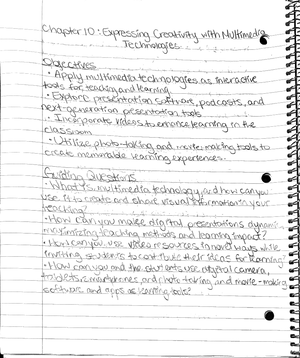 Chapter 10: Expressing Creativity with Multimedia
Technologies
Objectives
• Apply multimedia technologies as interactive
tools for teaching and learning
• Explore presentation software, podcasts, and
next-generation presentation tools
• Incorporate videos to enhance learning in the
classroom
• Utilize photo-taking and movie-making tools to
create memorable learning experiences.
Guiding Questions
• What is multimedia technology, and how can you
use it to create and share visual information in your
teaching?
• How can you make digital presentations dynamic,
maximizing teaching methods and learning impact?
• How can you use video resources in novel ways while
inviting students to contribute their ideas for learning?
• How can you and the students use digital camera,
tablets, smartphones, and photo-taking and movie-making
software and apps as learning tools?